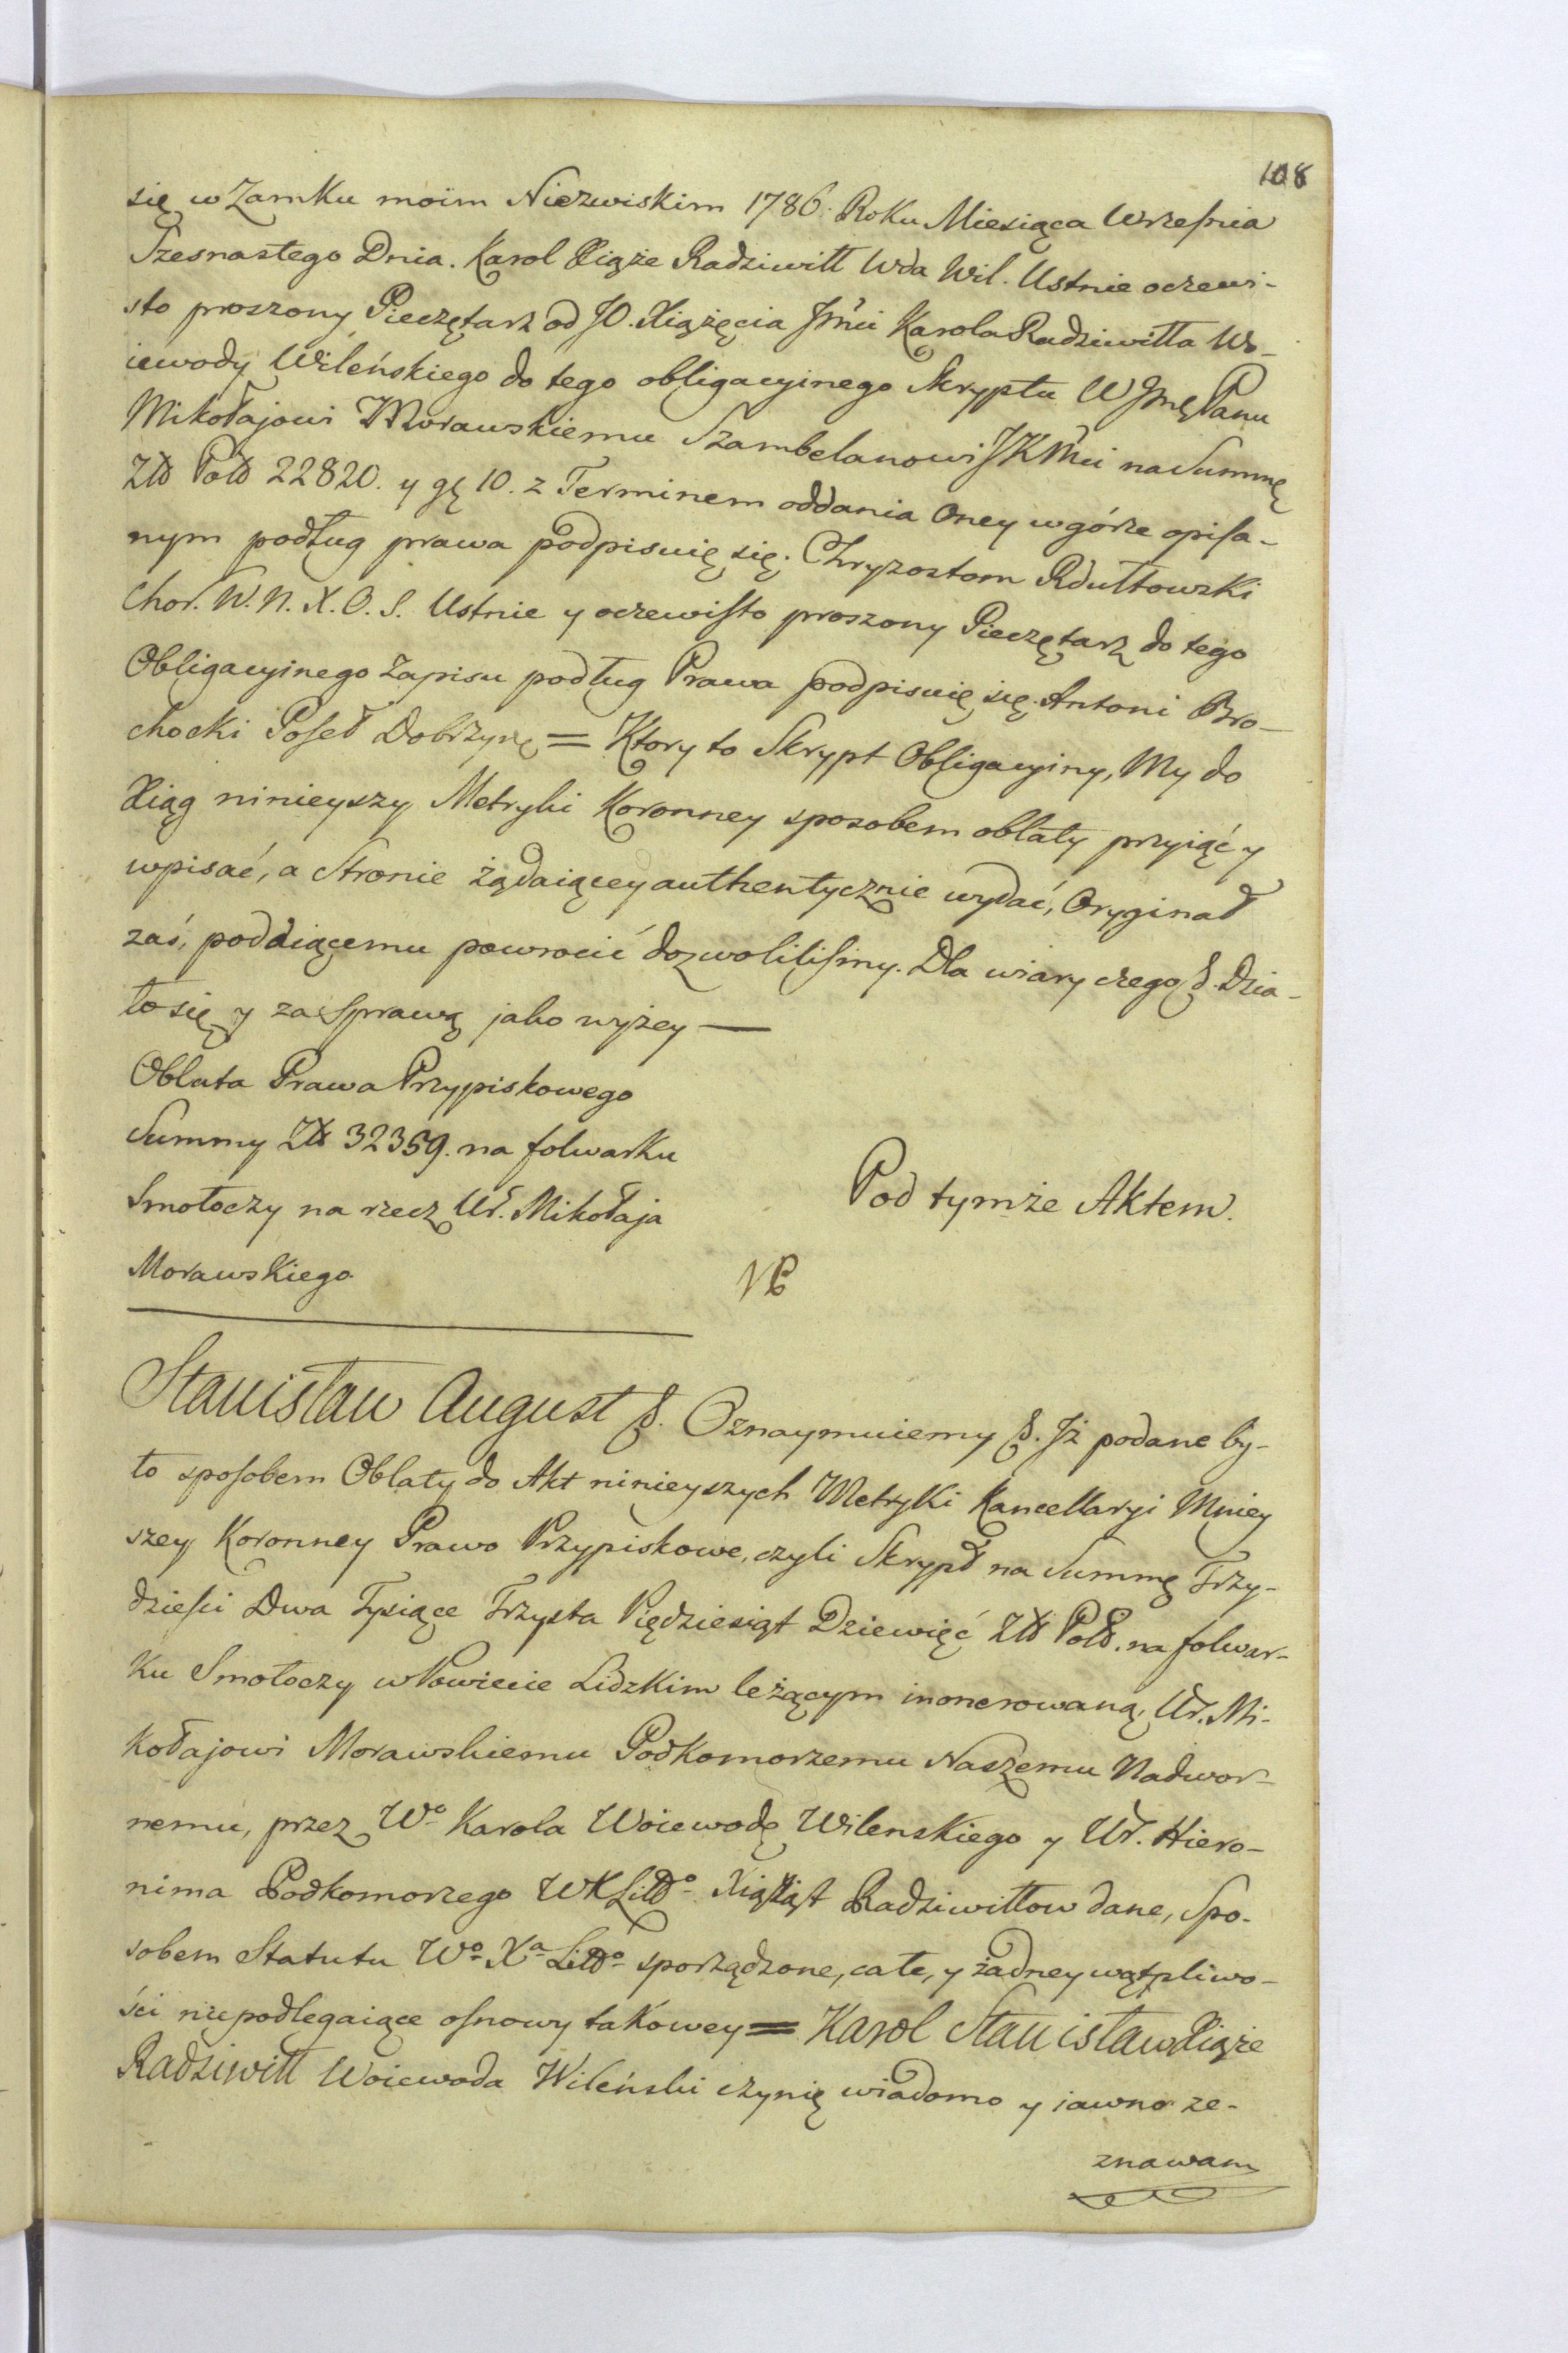 108
się w Zamku moim Nieżwiskim 1786. Roku Miesiąca Września
Szesnastego Dnia. Karol Xiąże Radziwiłł Wda Wil. Ustnie oczewi-
sto proszony Pieczętarz od JO. Xiążęcia Jmći Karola Radziwiłła Wo-
iewody Wileńskiego do tego obligacyinego Skryptu W Jmę Panu
Mikołajowi Morawskiemu Szambelanowi JKMći na Summę
Złł Poll 22820. y gę 10. z Terminem oddania Oney w górze opisa-
nym podług prawa podpisuię się. Chryzostom Rdułtowski
Chor. W. N. X. O. S. Ustnie y oczewisto proszony Pieczętarz do tego
Obligacyinego Zapisu podług Prawa podpisuię się. Antoni Bro-
chocki Poseł Dobrzyń = Ktory to Skrypt Obligacyiny, My do
Xiąg ninieyszy Metryki Koronney sposobem oblaty przyiąć y
wpisać, a Stronie żądaiącey authentycznie wydać, Oryginał
zaś, podaiącemu powrocić dozwoliliśmy. Dla wiary czego &. Dzia-
ło się y za Sprawą jako wyżey —
Oblata Prawa Przypiskowego
Summy Złł 32359. na folwarku
Smołoczy na rzecz Ur. Mikołaja
Morawskiego.
Pod tymże Aktem.
NB
Stanisław August &. Oznaymuiemy &. Iż podane by-
ło sposobem Oblaty do Akt ninieyszych Metryki Kancellaryi Mniey
szey Koronney Prawo Przypiskowe, czyli Skrypt na Summę Trzy-
dzieści Dwa Tysiące Trzysta Pięćdziesiąt Dziewięć Złł Poll. na folwar-
ku Smołoczy w Powiecie Lidzkim leżącym inonerowaną, Ur. Mi-
kołajowi Morawskiemu Podkomorzemu Naszemu Nadwor-
nemu, przez Wo Karola Woiewodę Wilenskiego y Ur. Hiero-
nima Podkomorzego WXLitto Xiążąt Radziwiłłow dane, Spo-
sobem Statutu Wo Xa Litto sporządzone, całe, y żadney wątpliwo-
ści niepodlegaiące osnowy takowey = Karol Stanisław Xiąże
Radziwiłł Woiewoda Wileński czynię wiadomo y iawno ze-
znawam